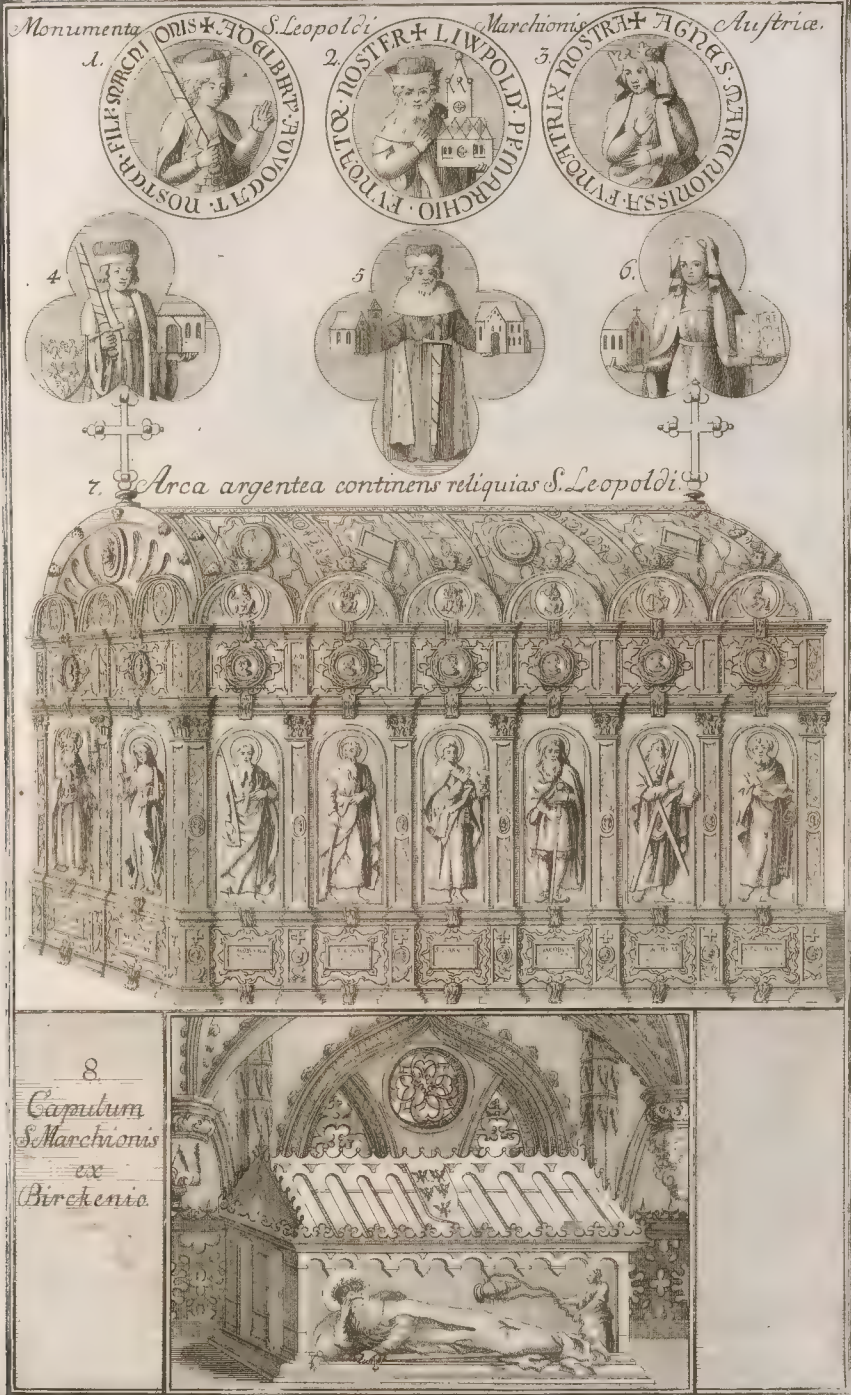 Monumenta S. Leopoldi Marchionis Austriæ.
1.
✠ ADELBERT · ADVOCAT · NOSTER · FILI · MARCHIONIS
2.
✠ LIWPOLD · PI · MARCHIO · FVNDATOR · NOSTER
3.
✠ AGNES · MARCHIONISSA · FVNDATRIX NOSTRA
4
5
6.
7. Arca argentea continens reliquias S. Leopoldi.
8.
Caputum
S. Marchionis
ex
Birckenio.